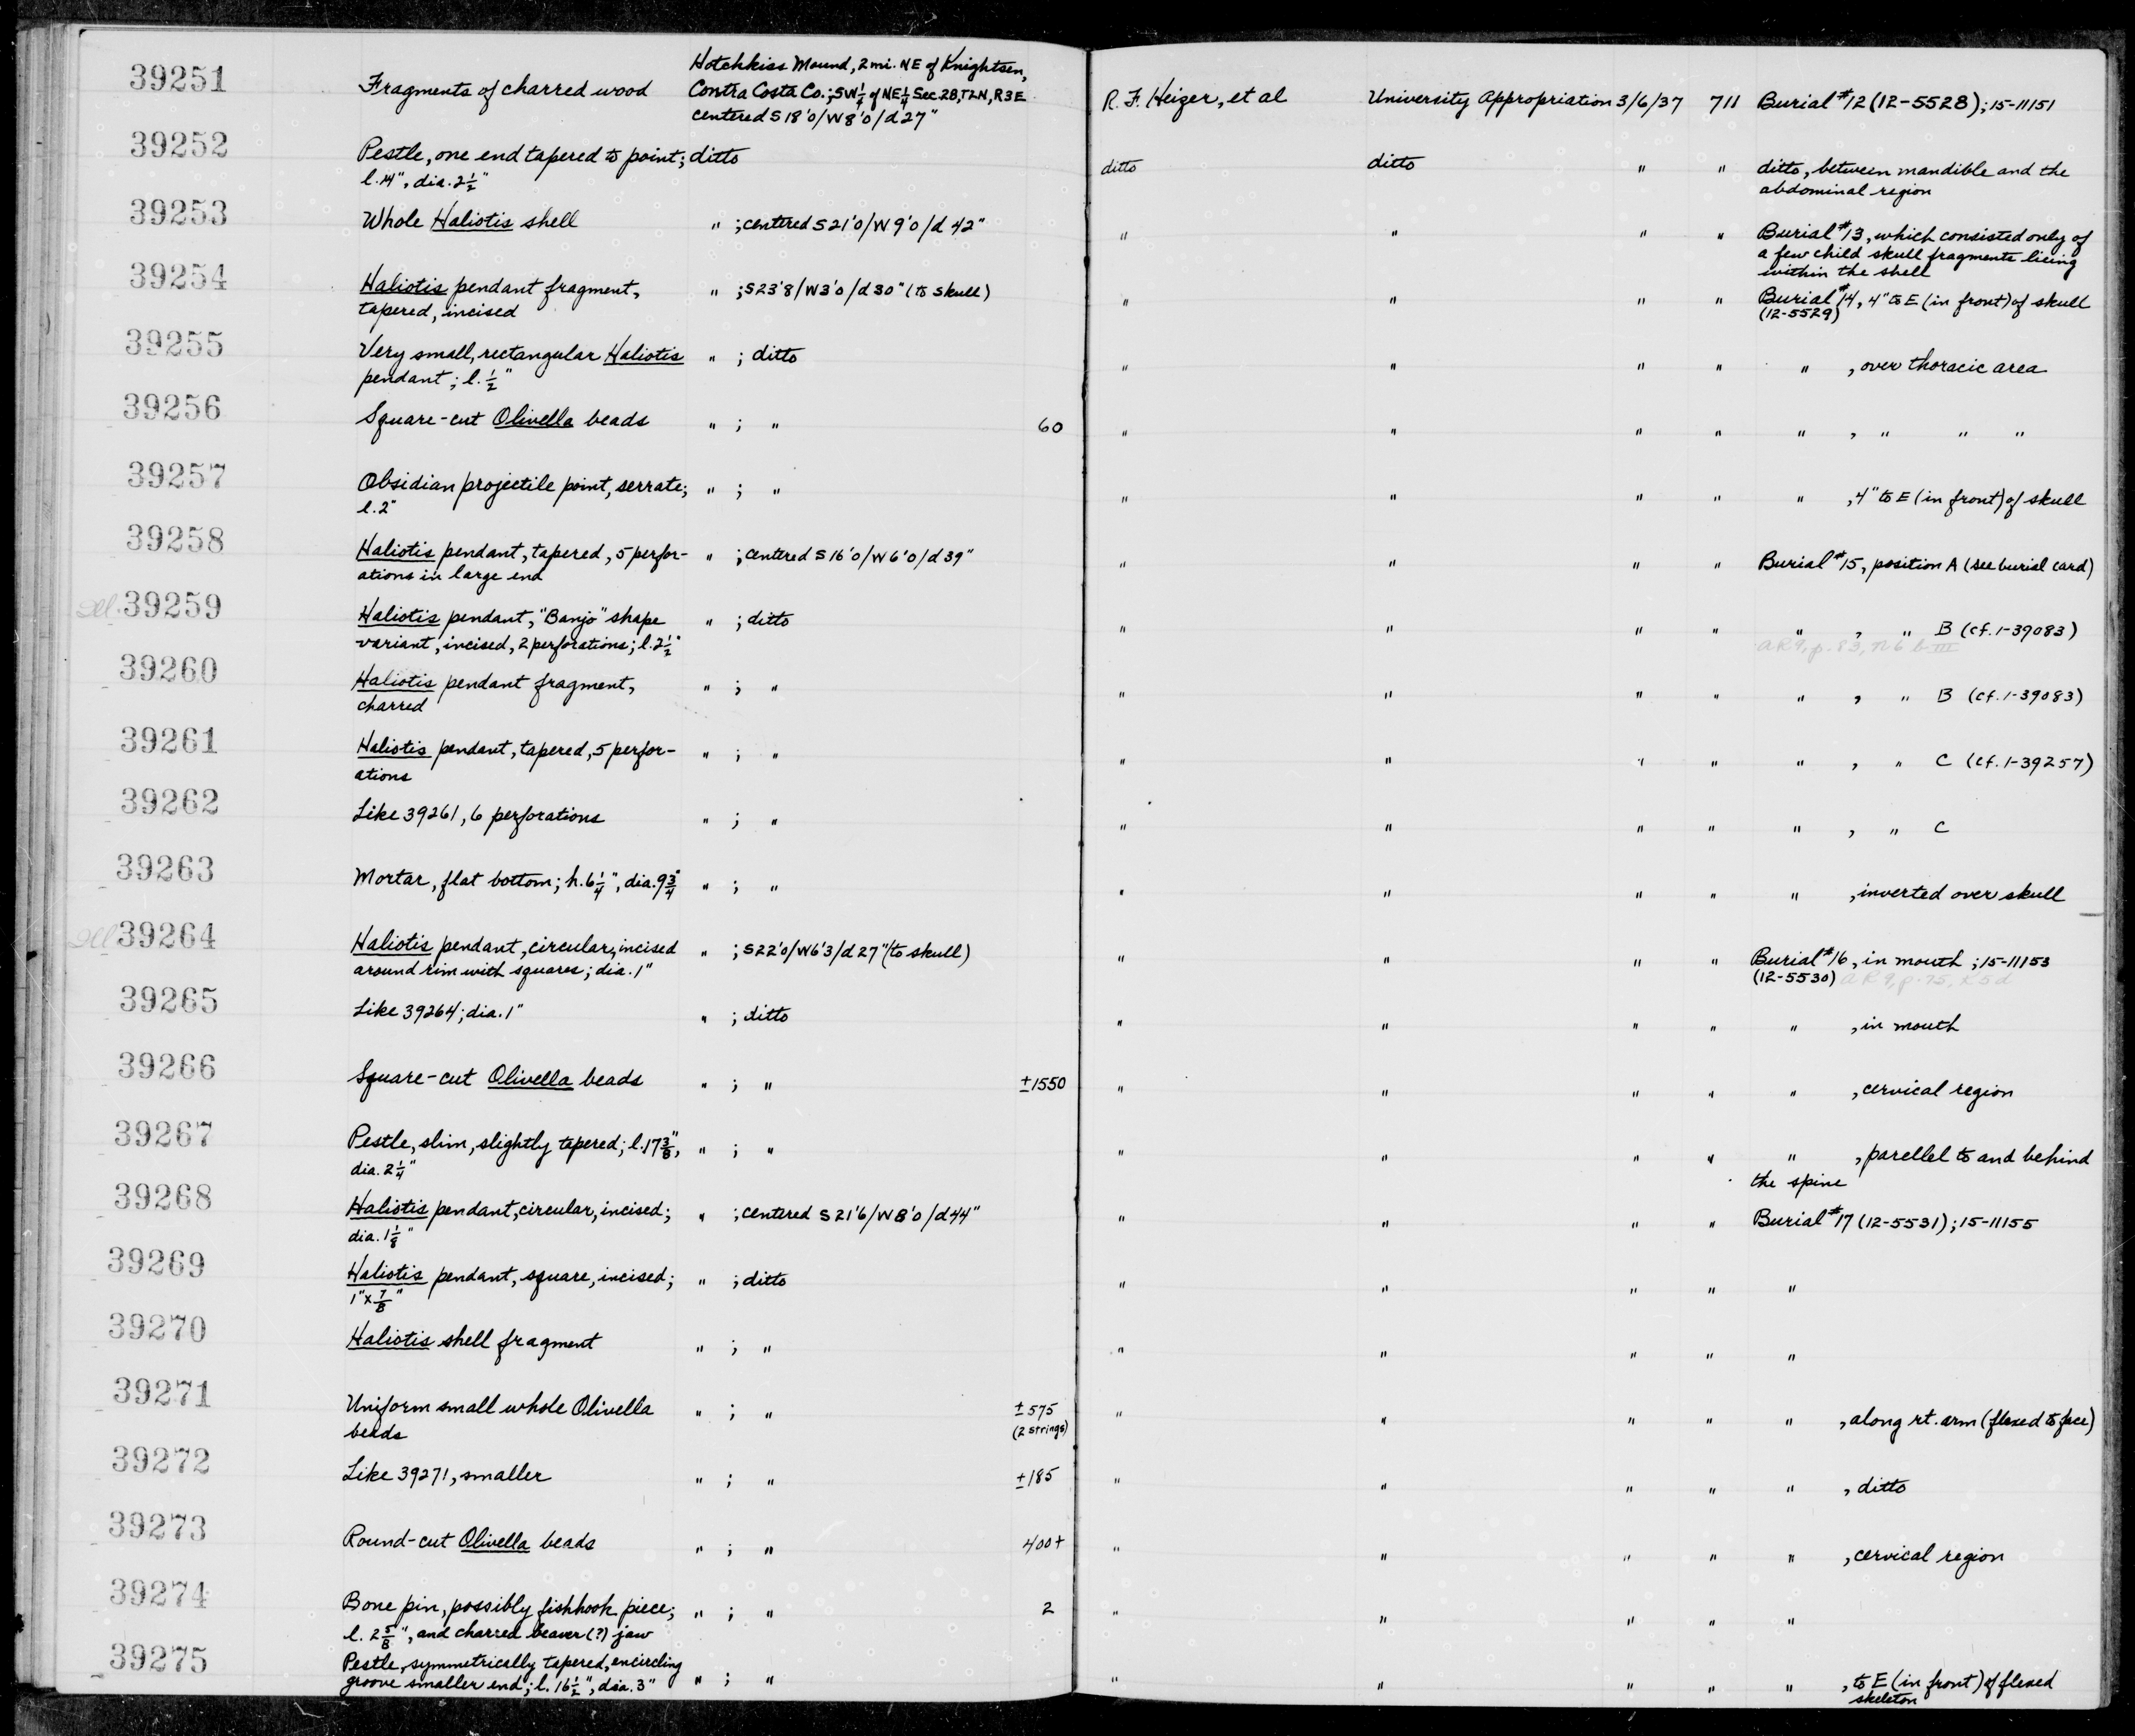 39251 Fragments of charred wood Hotchkiss Mound, 2 mi. NE of Knightsen, R. F. Heizer, et al University Appropriation 3/6/37 711 Burial #12 (12-5528); 15-11151
Contra Costa Co.; SW 1/4 of NE 1/4 Sec 28, T2N, R3E
centered S 18'0/W8'0/d 27"
39252 Pestle, one end tapered to point; ditto ditto ditto " " ditto, between mandible and the
l. 14", dia. 2 1/2" abdominal region
39253 Whole Haliotis shell " ; centered S 21'0/W 9'0/d 42" " " " " Burial #13, which consisted only of
a few child skull fragments lieing
within the shell
39254 Haliotis pendant fragment, " ; S 23'8/W3'0/d 30" (to skull) " " " " Burial #14, 4" to E (in front) of skull
tapered, incised (12-5529)
39255 Very small, rectangular Haliotis " ; ditto " " " " " , over thoracic area
pendant; l. 1/2"
39256 Square-cut Olivella beads " ; " 60 " " " " " , " " "
39257 Obsidian projectile point, serrate; " ; " " " " " " , 4" to E (in front) of skull
l. 2"
39258 Haliotis pendant, tapered, 5 perfor- " ; centered S 16'0/W 6'0/d 39" " " " " Burial #15, position A (see burial card)
ations in large end
Ill. 39259 Haliotis pendant, "Banjo" shape " ; ditto " " " " " , " B (cf. 1-39083)
variant, incised, 2 perforations; l. 2 1/2" AR 9, p. 83, n 6 b III
39260 Haliotis pendant fragment, " ; " " " " " " , " B (cf. 1-39083)
charred
39261 Haliotis pendant, tapered, 5 perfor- " ; " " " " " " , " C (cf. 1-39257)
ations
39262 Like 39261, 6 perforations " ; " " " " " " , " C
39263 Mortar, flat bottom; h. 6 1/4", dia. 9 3/4" " ; " " " " " " , inverted over skull
Ill 39264 Haliotis pendant, circular, incised " ; S 22'0/W6'3/d 27" (to skull) " " " " Burial #16, in mouth; 15-11153
around rim with squares; dia. 1" (12-5530) AR 9, p. 75, x 5 d
39265 Like 39264; dia. 1" " ; ditto " " " " " , in mouth
39266 Square-cut Olivella beads " ; " ±1550 " " " " " , cervical region
39267 Pestle, slim, slightly tapered; l. 17 3/8", " ; " " " " " " , parellel to and behind
dia. 2 1/4" the spine
39268 Haliotis pendant, circular, incised; " ; centered S 21'6/W 8'0/d 44" " " " " Burial #17 (12-5531); 15-11155
dia. 1 1/8"
39269 Haliotis pendant, square, incised; " ; ditto " " " " "
1" x 7/8"
39270 Haliotis shell fragment " ; " " " " " "
39271 Uniform small whole Olivella " ; " ±575 " " " " " , along rt. arm (flexed to face)
beads (2 strings)
39272 Like 39271, smaller " ; " ±185 " " " " " , ditto
39273 Round-cut Olivella beads " ; " 400+ " " " " " , cervical region
39274 Bone pin, possibly fishhook piece; " ; " 2 " " " " "
l. 2 5/8", and charred beaver (?) jaw
39275 Pestle, symmetrically tapered, encircling " ; " " " " " " , to E (in front) of flexed
groove smaller end; l. 16 1/2", dia. 3" skeleton